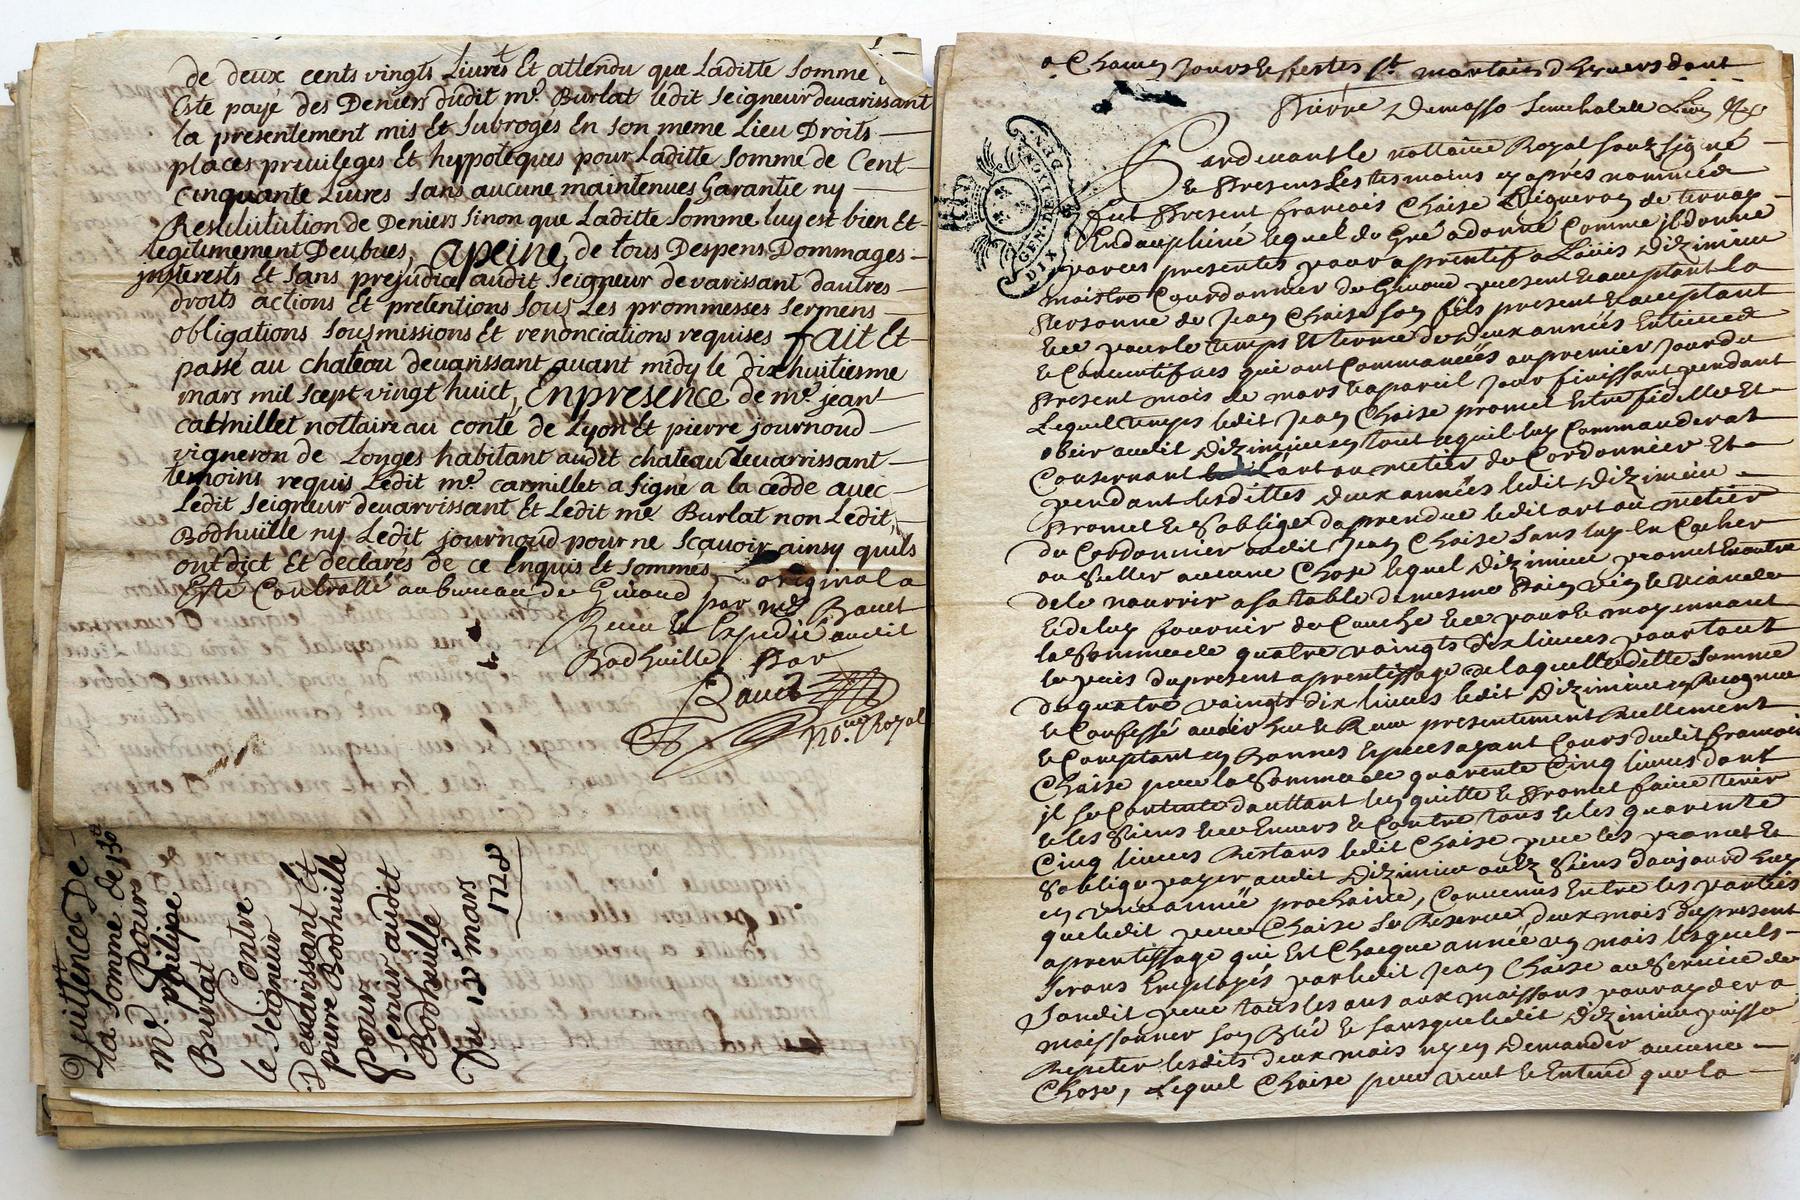 de deux cents vingts Livres Et attendu que Laditte Somme
Este payé des Deniers dudit mr. Burlat ledit Seigneur devarissant
la presentement mis Et Subrogés En Son meme Lieu Droits
places privileges Et hyppoteques pour Laditte Somme de Cent
Cinquante Livres Sans aucune maintenues Garantie ny
Restitutution de Deniers Sinon que Laditte Somme luy est bien Et
legitimement Deubues, apeine de tous Despens Dommages
jnterests Et Sans prejudice audit Seigneur devarissant dautres
droits actions Et pretentions Sous Les prommesses Sermens
obligations Sousmissions Et renonciations requises fait Et
passé au chateau devarissant avant midy le Dixhuitiesme
mars mil Scept vingt huict, En presence de mr. jean
catmillet nottaire au conté de Lyon Et pierre journoud
vigneron de Longes habitant audit chateau devarrissant
temoins requis Ledit mr. carmillet a Signé a la cedde avec
Ledit Seigneur devarrissant Et Ledit mr. Burlat non Ledit
Bodhuille ny Ledit journoud pour ne Scavoir ainsy quils
ont dict Et declarés de ce Enquis Et Sommés original a
Esté Controllé au bureau de Givord par me Bauet
Receu Et Expedié audit
Bodhuille Par
Bauet
No.re Royal
Quittence De
La Somme de 150 lt
Pour
Mr. philipe
Burlat
Contre
le Seignieur
Devarissant Et
pierre Bodhuille
Pour
Servir audit
Bodhuille
Du 18 mars
1728
a Chacun Jours Et festes St. martain dhivers dont
Pierre Demasso Senechal de Lion
GEN DE LYON
DIX DEN
Pardevant le nottaire Royal Souzsigné
Et Presens Les tesmoins cy aprés nommés
fut Present francois Chaise Vigneron de ternay
En dauphiné lequel de Gré a donné Comme jl donne
par ces presentes pour aprentif a Loüis Diziminu
maistre Cordonnier de Givord present Et aceptant la
Personne de Jean Chaise Son fils present Et aceptant
Et ce pour le temps Et terme de deux années Entieres
Et Consecutifves qui ont Commancées au premier Jour du
Present mois de mars Et a pareil Jour finissant pendant
Lequel temps ledit Jean Chaise promet Estre fidelle Et
obeir audit Diziminu en tout ce quil luy Commanderat
Consernant art ou metier de Cordonnier Et
pendant lesdittes deux années ledit Diziminu
Promet Et Soblige daprendre ledit art ou metier
de Cordonnier audit Jean Chaise Sans luy En Cacher
ou Seller aucune Chose lequel Diziminu promet En outre
de le nourrir a Sa table de mesme Pain Vin Et Viande
Et de luy fournir de Couche Et ce pour Et moyennant
la Somme de quatre vaingts dix livres pour tout
le prix du present aprentissage de laquelle ditte Somme
de quatre vaingts dix livres ledit Diziminu a Recognu
Et Confessé avoir heu Et Receu presentement Reellement
Et Comptant en Bonnes Especes ayant Cours dudit francois
Chaise pere la Somme de quarente Cinq livres dont
jl Se Contente dauttant len quitte Et Promet faire tenir
Et les Siens Et ce Envers Et Contre tous Et les quarente
Cinq livres Restans ledit Chaise pere les promet Et
Soblige payer audit Diziminu ou aux Siens daujourdhuy
en une année prochaine, Convenus Entre les parties
que ledit pere Chaise Se Reserve deux mois du present
aprentissage qui Est Chacque année un mois lesquels
Serons Employés par ledit Jean Chaise au Service de
Sondit pere tous les ans aux moissons pour ayder a
moissonner Son Bléd Et Sans que ledit Diziminu puisse
Repeter lesdits deux mois ny en demander aucune
Chose, Lequel Chaise pere veut Et Entend que la